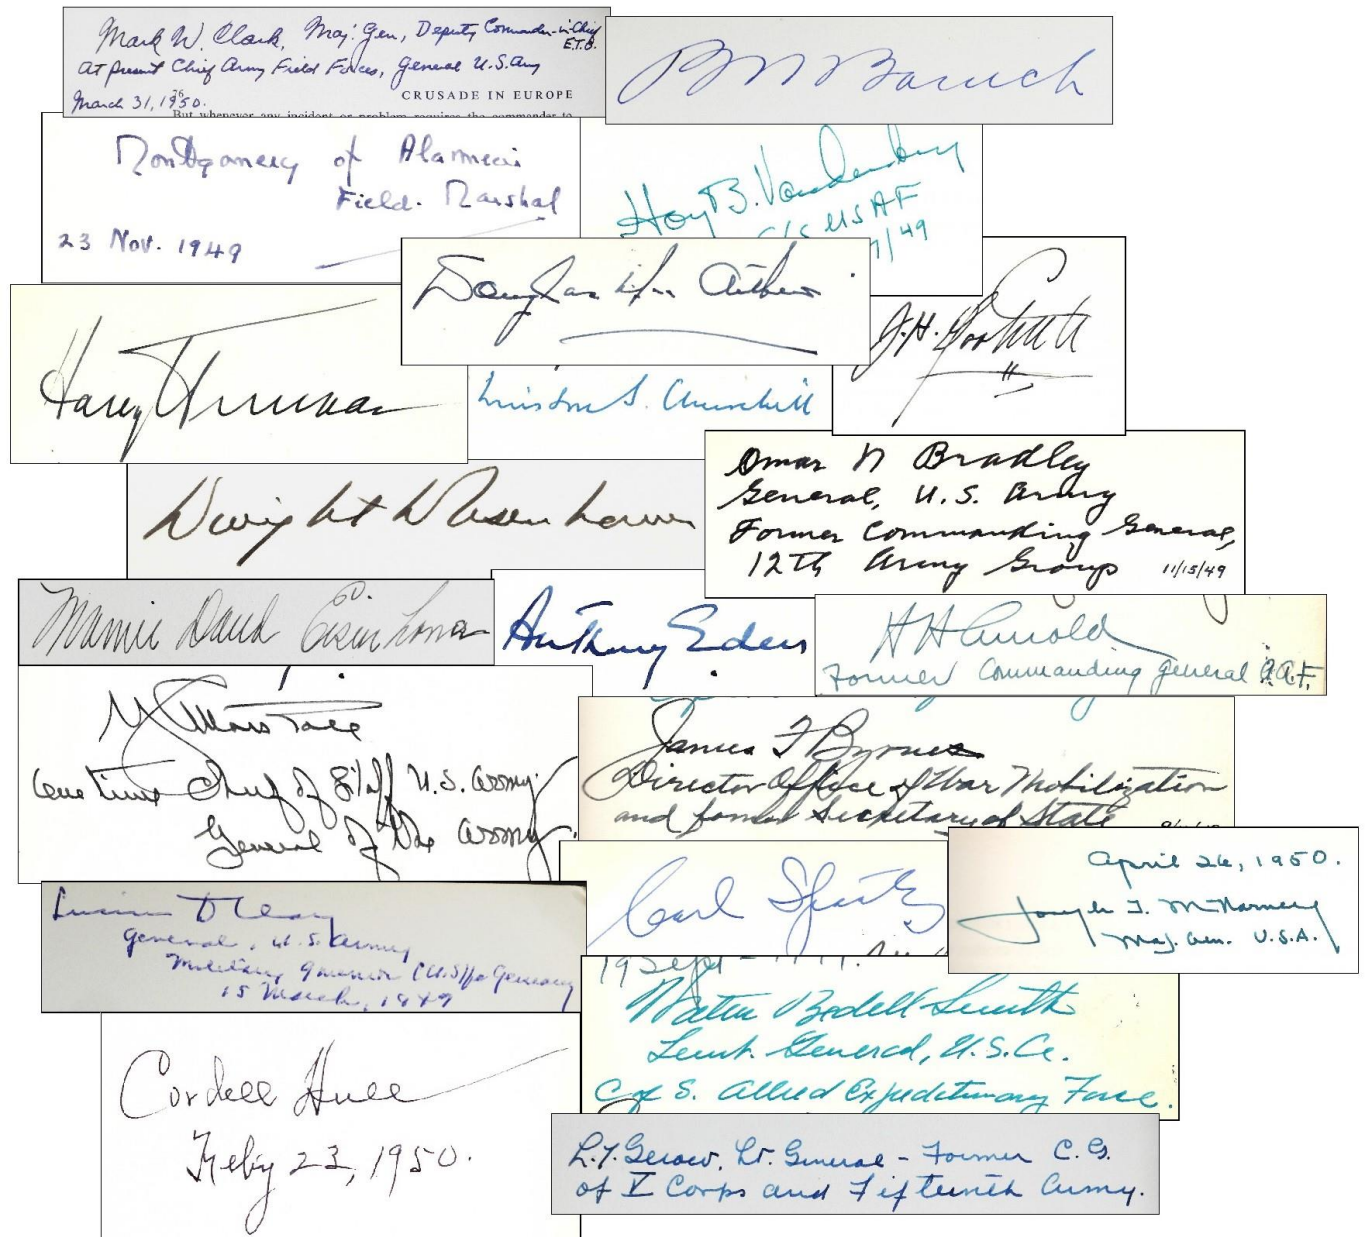 Mark W. Clark, Maj. Gen, Deputy Commander-in-Chief
E.T.O.
At present Chief Army Field Forces, General U.S. Army
March 31, 1950.
76
CRUSADE IN EUROPE
But whenever any incident or problem requires the commander to
B M Baruch
Montgomery of Alamein
Field-Marshal
23 Nov. 1949
Hoyt S. Vandenberg
C/S USAF
/49
Douglas MacArthur
Harry Truman
Winston S. Churchill
J. H.
Omar N Bradley
General, U.S. Army
Former Commanding General,
12th Army Group 11/15/49
Dwight D Eisenhower
Mamie Doud Eisenhower
Anthony Eden
H H Arnold
Former Commanding General A.A.F.
G C Marshall
One time Chief of Staff U.S. Army
General of the Army
James F Byrnes
Director Office of War Mobilization
and former Secretary of State
Carl Spaatz
19 Sept
April 26, 1950.
Joseph T. McNarney
Maj. Gen. U.S.A.
Lucius D Clay
General, U.S. Army
Military Governor (U.S.) for Germany
15 March, 1949
Walter Bedell Smith
Lieut. General, U.S.A.
C of S. Allied Expeditionary Force.
Cordell Hull
Feby 23, 1950.
L.T. Gerow, Lt. General - Former C.G.
of V Corps and Fifteenth Army.